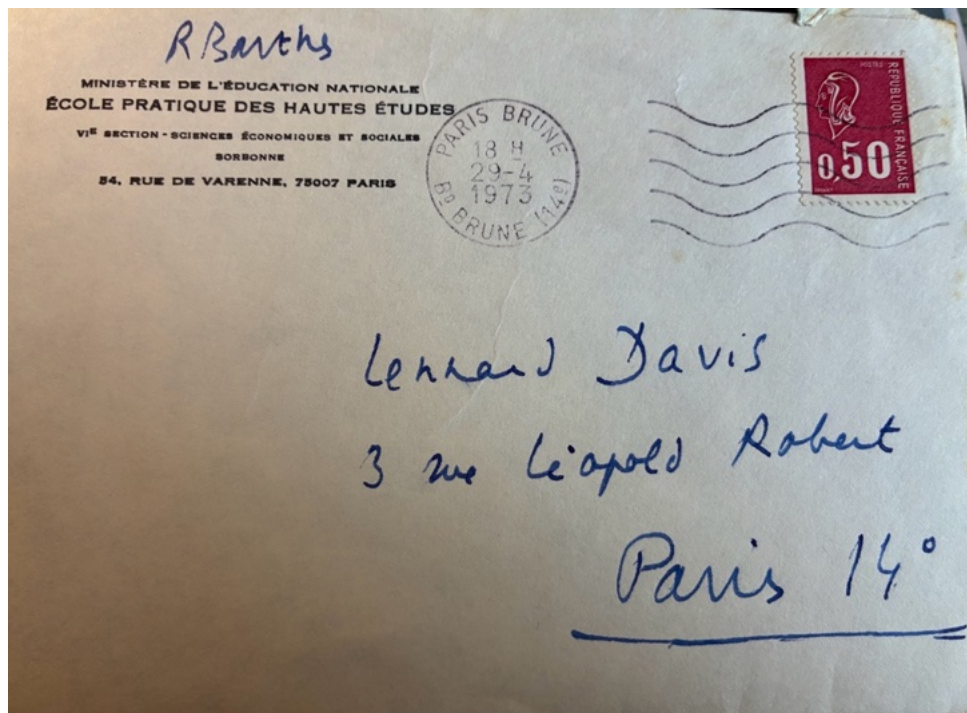 R Barthes
MINISTÈRE DE L'ÉDUCATION NATIONALE
ÉCOLE PRATIQUE DES HAUTES ÉTUDES
VIE SECTION - SCIENCES ÉCONOMIQUES ET SOCIALES
SORBONNE
54, RUE DE VARENNE, 75007 PARIS
PARIS BRUNE
18 H
29-4
1973
BD BRUNE (14e)
POSTES
RÉPUBLIQUE FRANÇAISE
0,50
Lennard Davis
3 rue Léopold Robert
Paris 14°